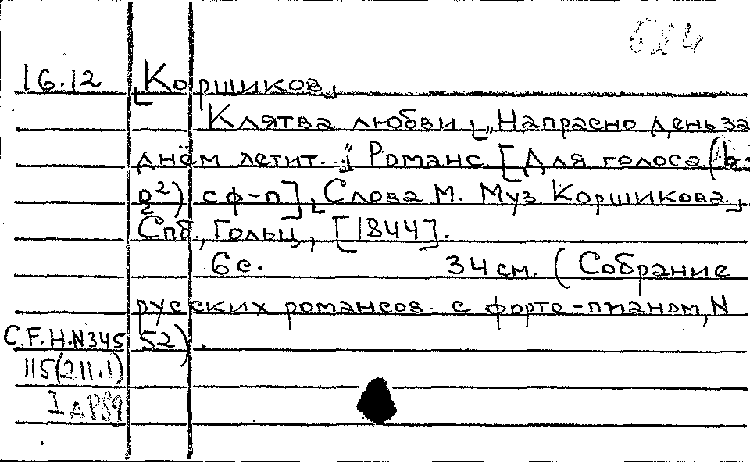 684
16.12 [Коршиков]
Клятва любви „Напрасно день за
днём летит." Романс [Для голоса (b-
g²) с ф-п], Слова М. Муз Коршикова,
Спб, Гольц, [1844].
6с. 34 см. (Собрание
русских романсов с форте-пиано, N
C.F.H.N345 52).
115(211.1)